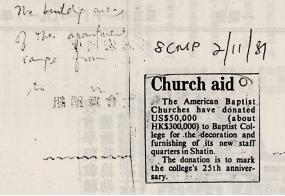 The building areas
of the apartments
range from
to
SCMP 2/11/81
Church aid
The American Baptist
Churches have donated
US$50,000 (about
HK$300,000) to Baptist Col-
lege for the decoration and
furnishing of its new staff
quarters in Shatin.
The donation is to mark
the college's 25th anniver-
sary.